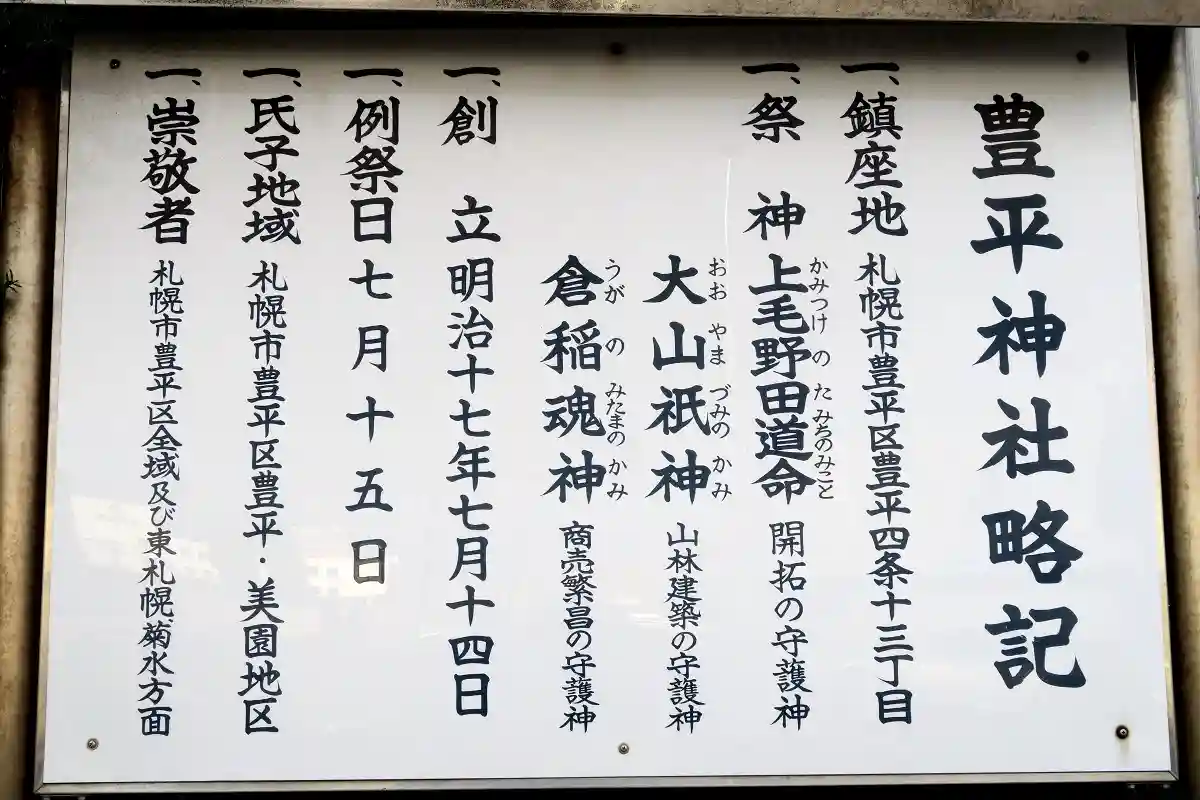 豊平神社略記
一、鎮座地 札幌市豊平区豊平四条十三丁目
一、祭神 上毛野田道命 開拓の守護神
かみつけ の た みちのみこと
大山祇神 山林建築の守護神
おお やま づみの かみ
倉稲魂神 商売繁昌の守護神
うが の みたまの かみ
一、創立 明治十七年七月十四日
一、例祭日 七月十五日
一、氏子地域 札幌市豊平区豊平・美園地区
一、崇敬者 札幌市豊平区全域及び東札幌、菊水方面